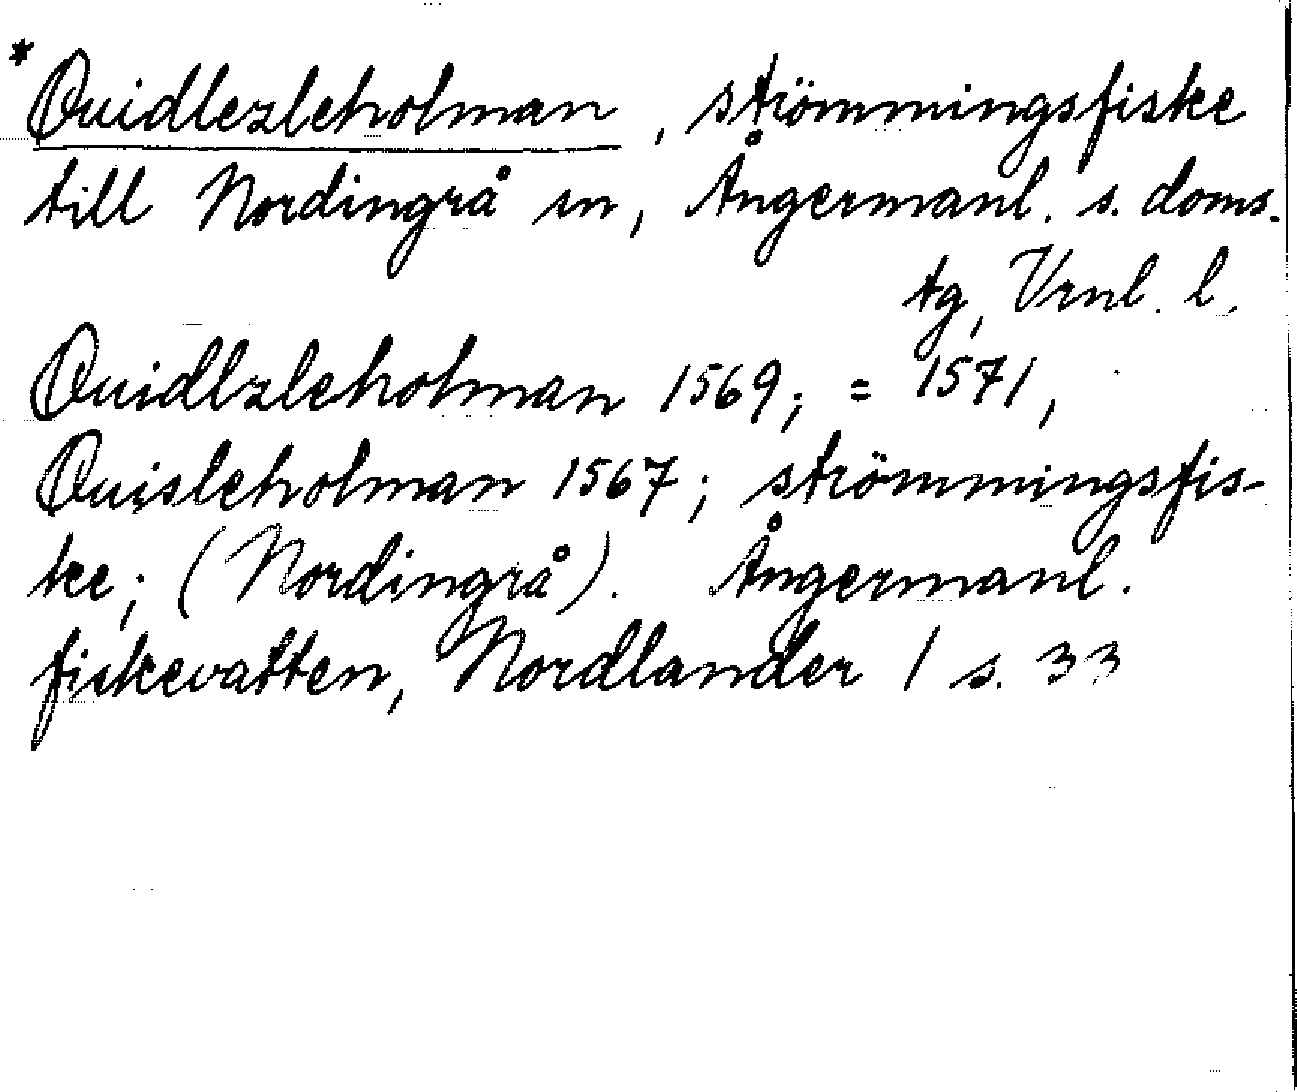 *Quidlezleholman, strömmingsfiske
till Nordingrå sn, Ångermanl. s. doms.
tg, Vrnl. l.
Quidlzleholman 1569; = 1571,
Quisleholman 1567; strömmingsfis-
ke; (Nordingrå). Ångermanl.
fiskevatten, Nordlander 1 s. 33